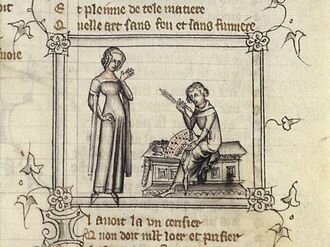 Et plenne de tele matiere
Quelle art sans feu et sans fumiere
uoie
Il auoit la vn cerisier
Qu non doit mlt loer et prisier